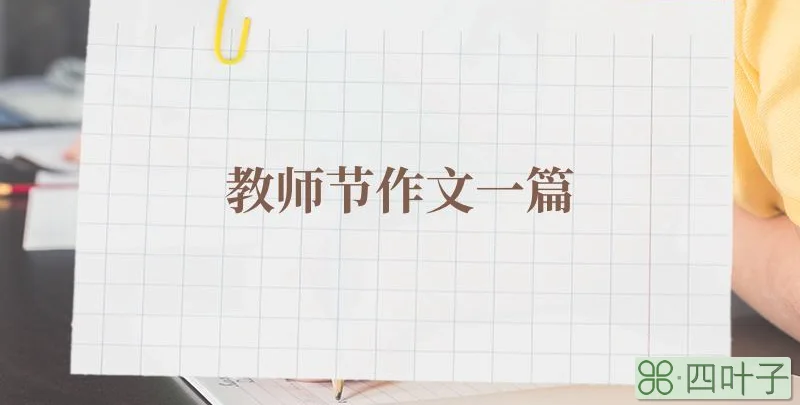 教师节作文一篇
四叶子